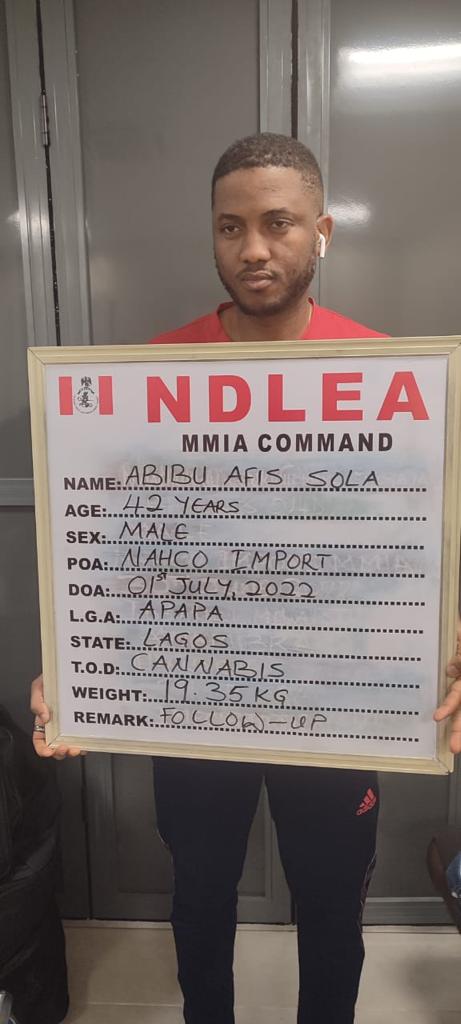 NDLEA
MMIA COMMAND
NAME: ABIBU AFIS SOLA
AGE: 42 YEARS
SEX: MALE
POA: NAHCO IMPORT
DOA: 01ST JULY, 2022
L.G.A: APAPA
STATE: LAGOS
T.O.D: CANNABIS
WEIGHT: 19.35KG
REMARK: FOLLOW-UP